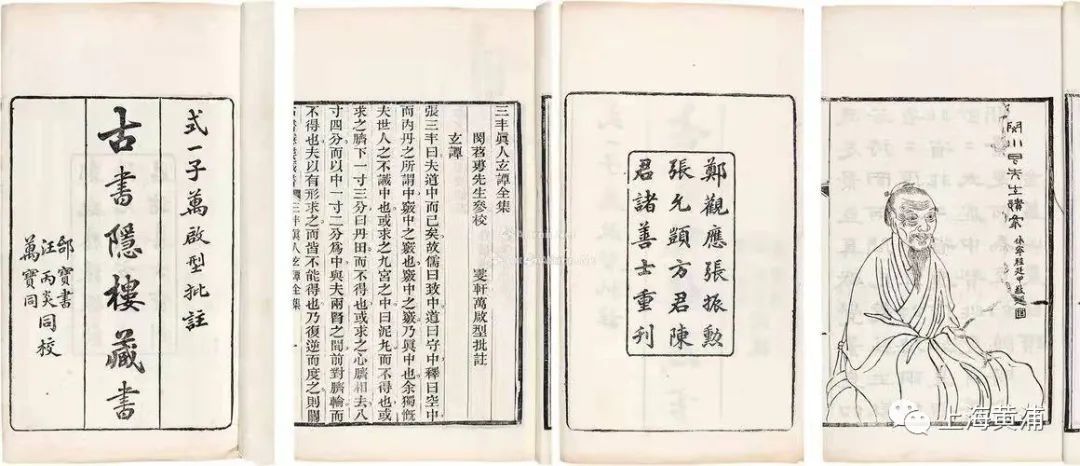 式一子萬啟型批註
古書隱樓藏書
寶書
汪丙炎同校
萬寶同
三丰眞人玄譚全集
閔苕旉先生參校　雯軒萬啟型批註
玄譚
張三丰曰夫道中而已矣故儒曰致中道曰守中釋曰空中
而內丹之所謂中竅中之竅也竅中之竅乃眞中也余獨慨
夫世人之不識中也或求之九宮之中曰泥丸而不得也或
求之臍下一寸三分曰丹田而不得也或求之心臍相去八
寸四分而以中一寸二分為中與夫兩腎之間前對臍輪而
不得也夫以有形求之而皆不能得也乃復逆而度之則關
三丰眞人玄譚全集　一
鄭觀應張振勳
張允顗方君陳
君諸善士重刊
閔小艮先生
上海黄浦